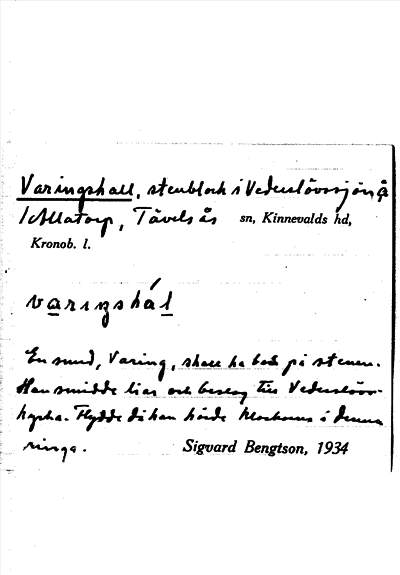 Varingshall, stenblock i Vederslövssjön å
1 Allatorp, Tävelsås sn, Kinnevalds hd,
Kronob. l.
varıŋshál
En smed, Varing, skall ha bott på stenen.
Han smidde lias och beslag till Vederslövs-
kyrka. Flydde då han hörde klockorna i denna
ringa. Sigvard Bengtson, 1934